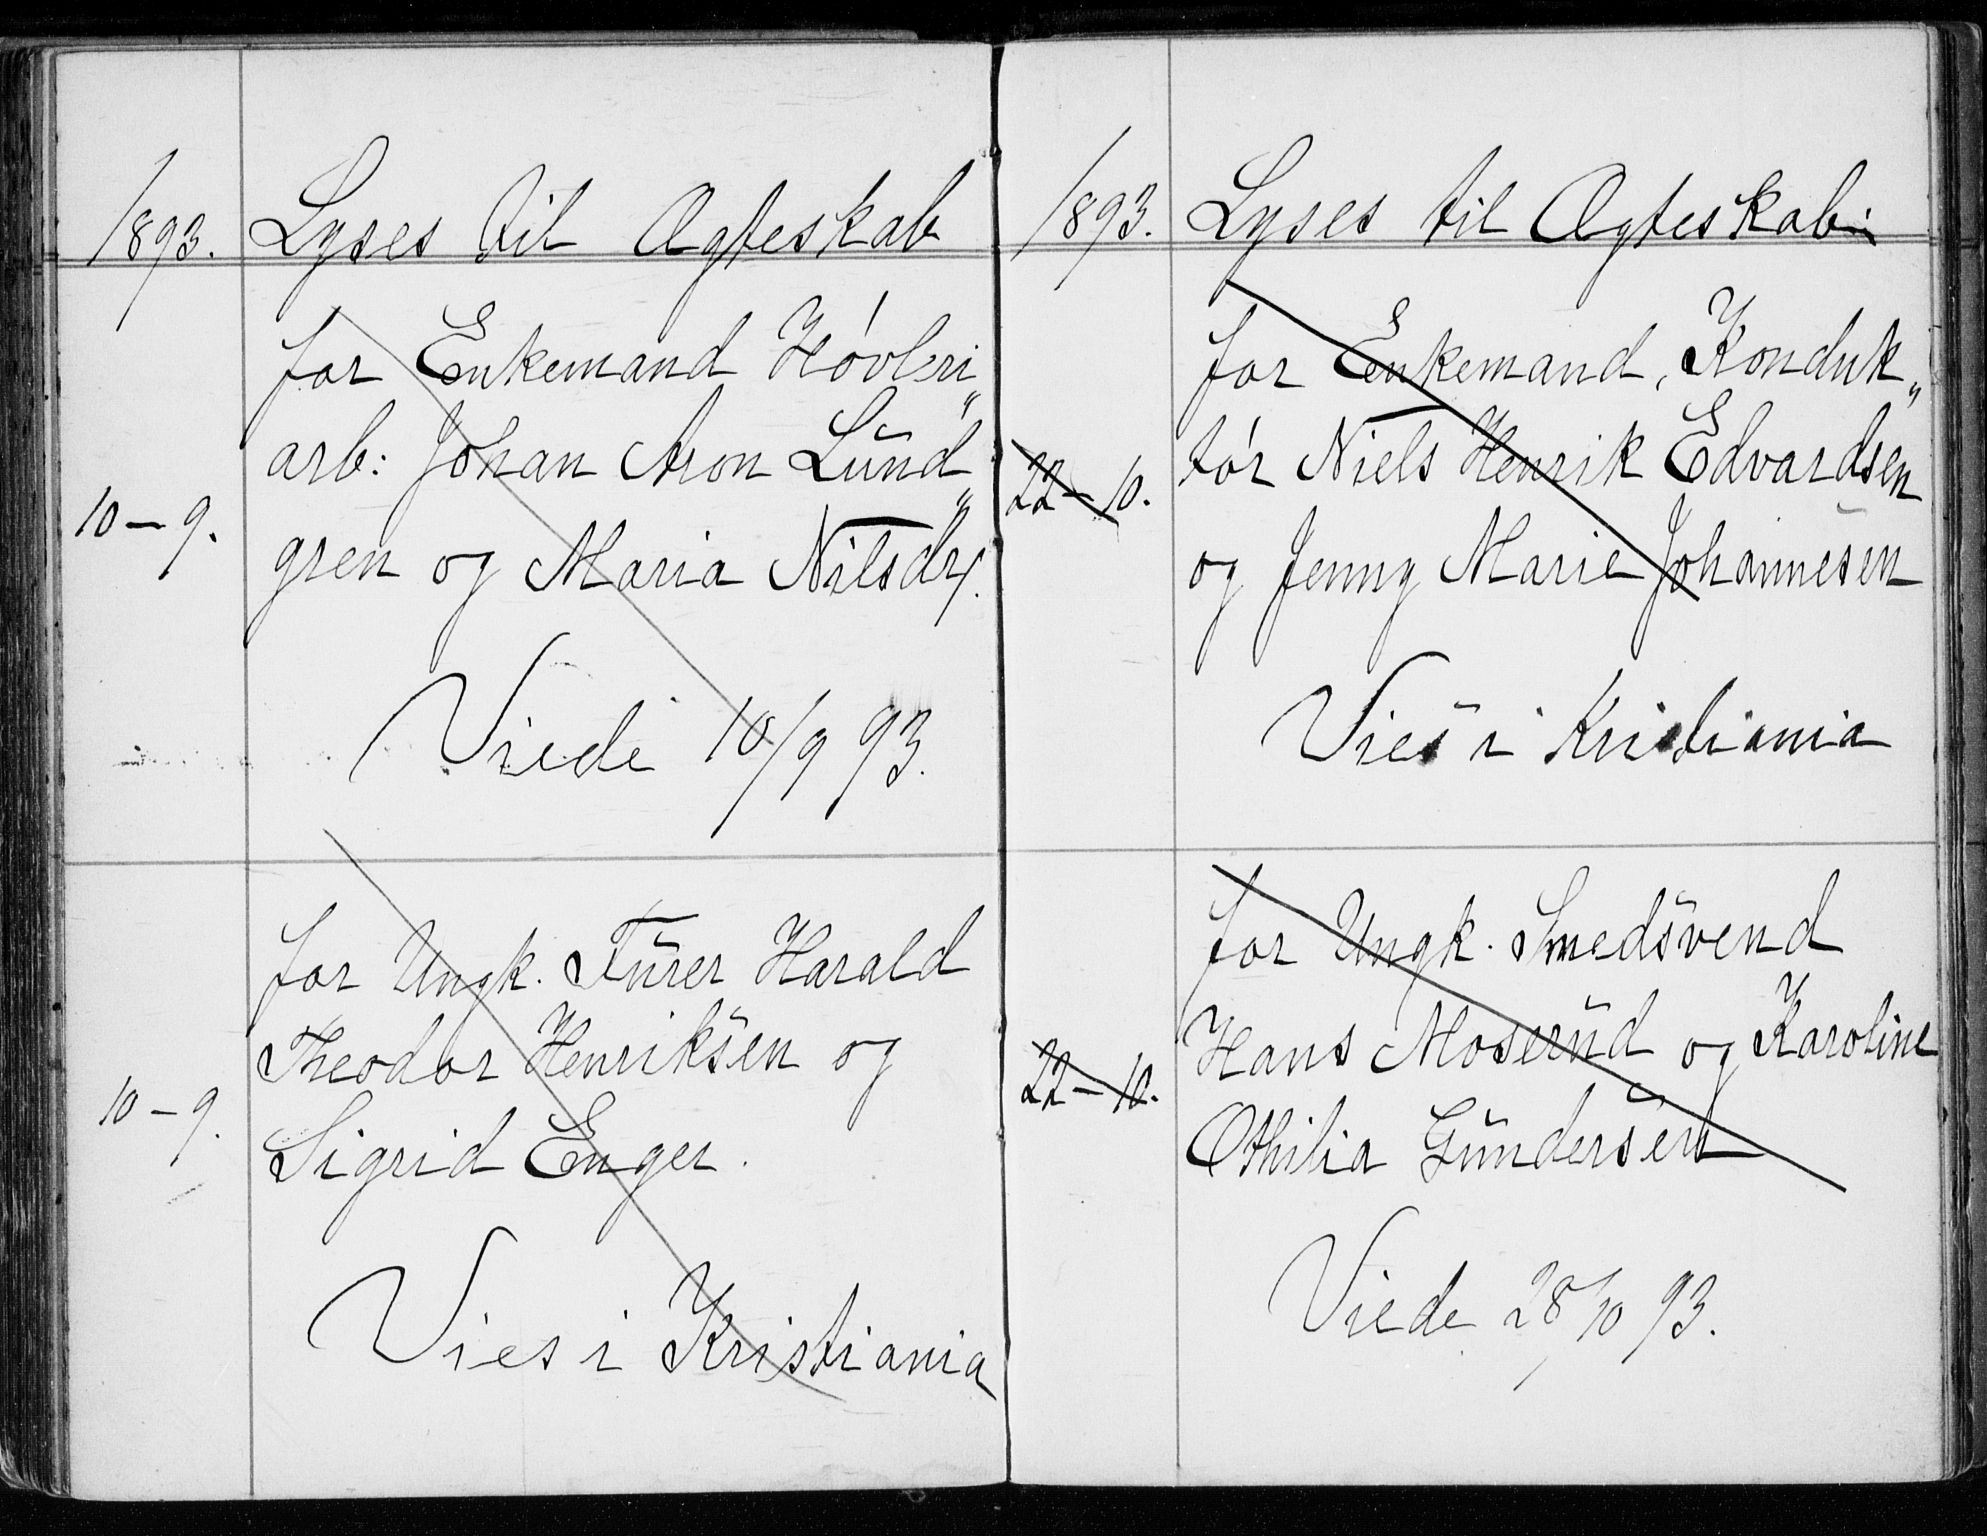 1893. Lyses til Ægteskab
for Enkemand Høvleri„
arb: Johan Aron Lund„
10 – 9.
gren og Maria Nilsdr.
Viede 10/9 93.
for Ungk. Fürer Harald
Theodor Henriksen og
10 – 9.
Sigrid Enger.
Vies i Kristiania
1893. Lyses til Ægteskab:
for Enkemand, Konduk„
22 – 10. tør Niels Henrik Edvardsen
og Jenny Marie Johannesen
Vies i Kristiania
for Ungk. Smedsvend
Hans Moserud og Karoline
22 – 10.
Othilia Gundersen
Viede 28/10 93.